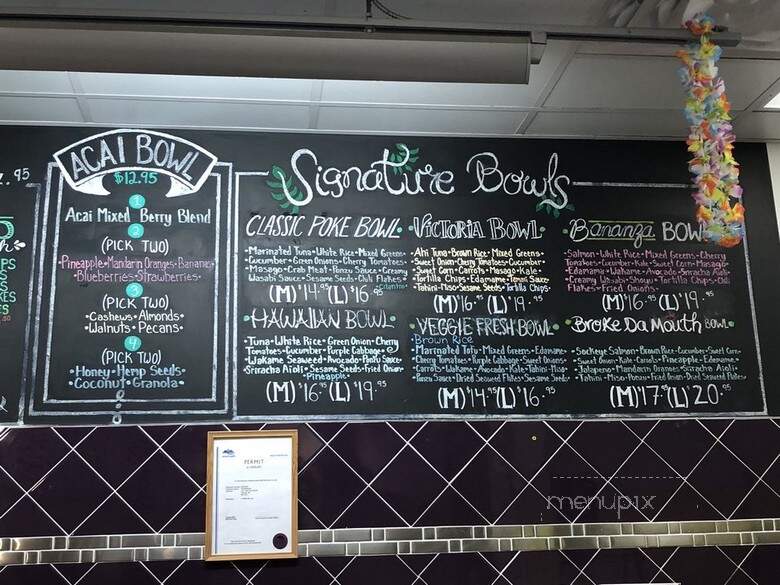 2.95
ACAI BOWL
$12.95
1
Acai Mixed Berry Blend
2
(PICK TWO)
Pineapple • Mandarin Oranges • Bananas
Blueberries • Strawberries
3
(PICK TWO)
Cashews • Almonds
Walnuts • Pecans
4
(PICK TWO)
Honey • Hemp Seeds
Coconut • Granola
Signature Bowls
CLASSIC POKE BOWL
Marinated Tuna • White Rice • Mixed Greens
Cucumbers • Green Onions • Cherry Tomatoes
Masago • Crab Meat • Ponzu Sauce • Creamy
Wasabi Sauce • Sesame Seeds • Chili Flakes
Cilantro
(M) 14.95 (L) 16.95
HAWAIIAN BOWL
Tuna • White Rice • Green Onion • Cherry
Tomatoes • Cucumber • Purple Cabbage
Wakame Seaweed • Avocado • Ponzu Sauce
Sriracha Aioli • Sesame Seeds • Fried Onion
Pineapple
(M) 16.95 (L) 19.95
VICTORIA BOWL
Ahi Tuna • Brown Rice • Mixed Greens
Sweet Onion • Cherry Tomatoes • Cucumber
Sweet Corn • Carrots • Masago • Kale
Tortilla Chips • Edamame • Ponzu Sauce
Tahini-Miso • Sesame Seeds • Tortilla Chips
(M) 16.95 (L) 19.95
VEGGIE FRESH BOWL
Brown Rice
Marinated Tofu • Mixed Greens • Edamame
Cherry Tomatoes • Purple Cabbage • Sweet Onions
Carrots • Wakame • Avocado • Kale • Tahini-Miso
Ponzu Sauce • Dried Seaweed Flakes • Sesame Seeds
(M) 14.95 (L) 16.95
Bananza BOWL
Salmon • White Rice • Mixed Greens • Cherry
Tomatoes • Cucumber • Kale • Sweet Corn • Masago
Edamame • Wakame • Avocado • Sriracha Aioli
Creamy Wasabi • Shoyu • Tortilla Chips • Chili
Flakes • Fried Onions
(M) 16.95 (L) 19.95
Broke Da Mouth BOWL
Sockeye Salmon • Brown Rice • Cucumber • Sweet Corn
Sweet Onion • Kale • Carrots • Pineapple • Edamame
Jalapeno • Mandarin Oranges • Sriracha Aioli
Tahini-Miso • Ponzu • Fried Onion • Dried Seaweed Flakes
(M) 17.95 (L) 20.95
PERMIT
menupix